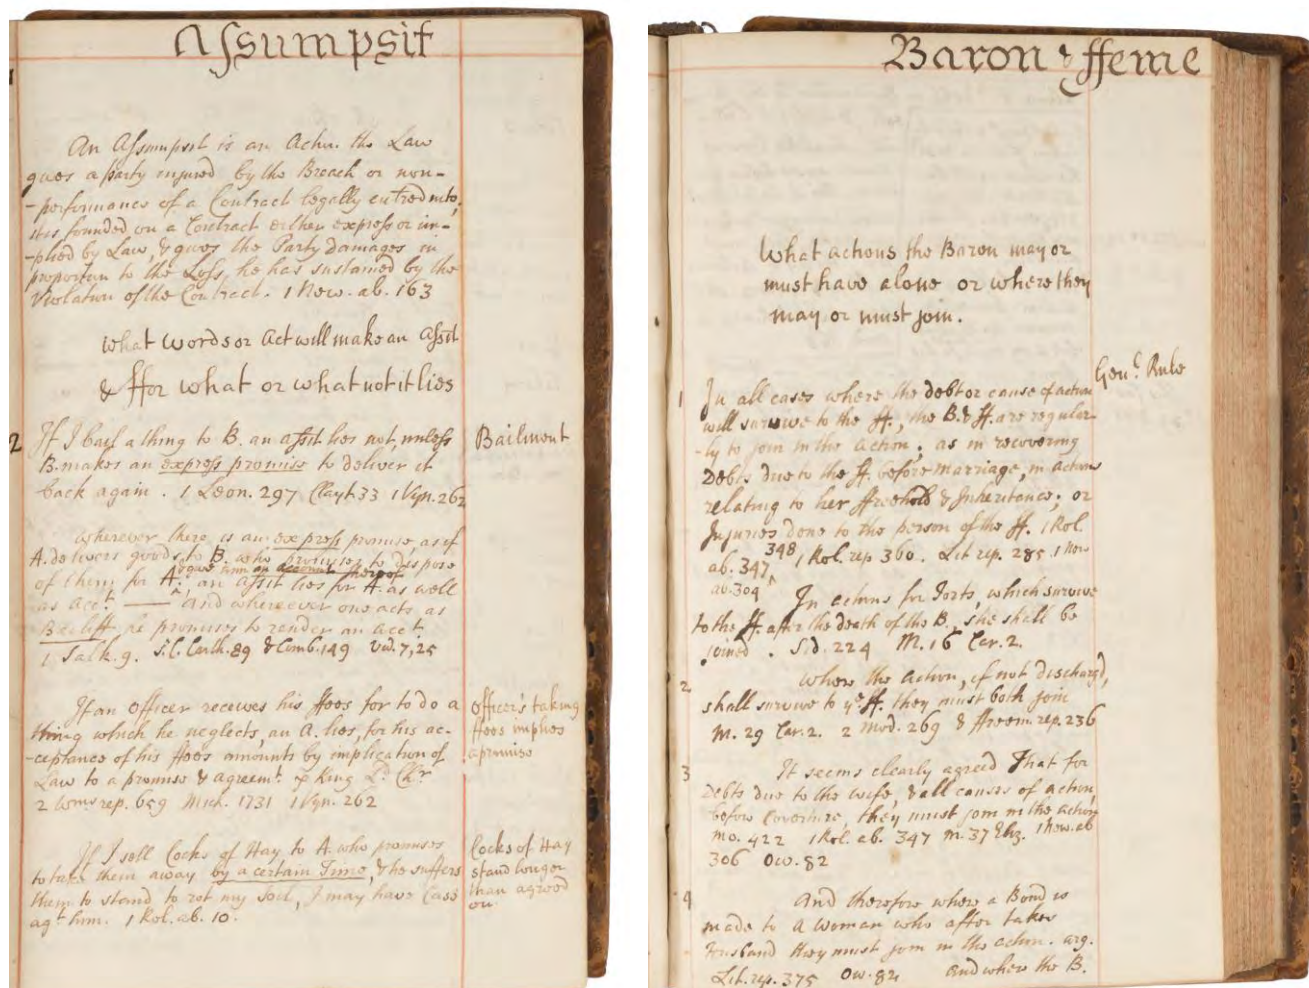 Assumpsit
An Assumpsit is an Actn. the Law
gives a party injured by the Breach or non-
-performance of a Contract legally entred into,
it is founded on a Contract either express or im-
-plied by Law, & gives the Party Damages in
proportn to the Loss, he has sustained by the
Violation of the Contract. 1 New. ab. 163
What words or Act will make an Assit
& ffor what or what not it lies
2 If I bail a thing to B. an assit lies not, unless
B. makes an express promise to deliver it
back again. 1 Leon. 297 Clayt. 33 1 Vyn. 262
Bailment
Wherever there is an express promise, as if
A. delivers goods to B. who promises to dispose
of them, for A. & give him an account thereof an assit lies for A. as well
as acct. — and whereever one acts as
Bailiff he promises to render an acct.
1 Salk. 9. S.C. Carth. 89 & Comb. 149 Vid. 7, 25
If an officer receives his ffees for to do a
thing which he neglects, an A. lies, for his ac-
-ceptance of his ffees amounts by implication of
Law to a promise & agreemt. King Ld. Chr
2 Wms rep. 659 Mich. 1731 1 Vyn. 262
Officer's taking
ffees implies
a promise
If I sell Cocks of Hay to A. who promises
to take them away by a certain Time, & he suffers
them to stand to rot my soil, I may have Case
agt. him. 1 Rol. ab. 10.
Cocks of Hay
stand longer
than agreed
on
Baron & ffeme
What actions the Baron may or
must have alone or where they
may or must join.
Genl. Rule
1 In all cases where the debt or cause of action
will survive to the ff., the B. & ff. are regular-
-ly to join in the action; as in recovering
Debts due to the ff. before marriage, in actions
relating to her ffreehold & Inheritance; or
Injuries done to the person of the ff. 1 Rol.
ab. 347, 348 1 Rol. rep. 360. Lit. rep. 285 1 New
ab. 304
In actions for Torts, which survive
to the ff. after the death of the B. she shall be
joined. Sid. 224 M. 16 Car. 2.
2 Where the action, if not discharged,
shall survive to ye ff. they must both join
M. 29 Car. 2. 2 Mod. 269 & ffreem. rep. 236
3 It seems clearly agreed That for
Debts due to the wife, & all causes of action,
before Coverture, they must join in the action
Mo. 422 1 Rol. ab. 347 M. 37 Eliz. 1 New. ab
306 Ow. 82
4 And therefore where a Bond is
made to a woman who after takes
Husband they must join in the action. arg.
Lit. rep. 375 Ow. 82 and where the B.